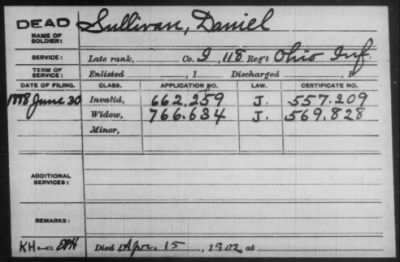 DEAD Sullivan, Daniel
NAME OF SOLDIER:
SERVICE: Late rank, Co. I, 118 Reg't Ohio Inf.
TERM OF SERVICE: Enlisted , 1 Discharged , 1
DATE OF FILING. CLASS. APPLICATION NO. LAW. CERTIFICATE NO.
June 30 Invalid, 662.259 J. 557.209
Widow, 766.634 J. 569.828
Minor,
ADDITIONAL SERVICES:
REMARKS:
KH Died Apr. 15, 1902, at